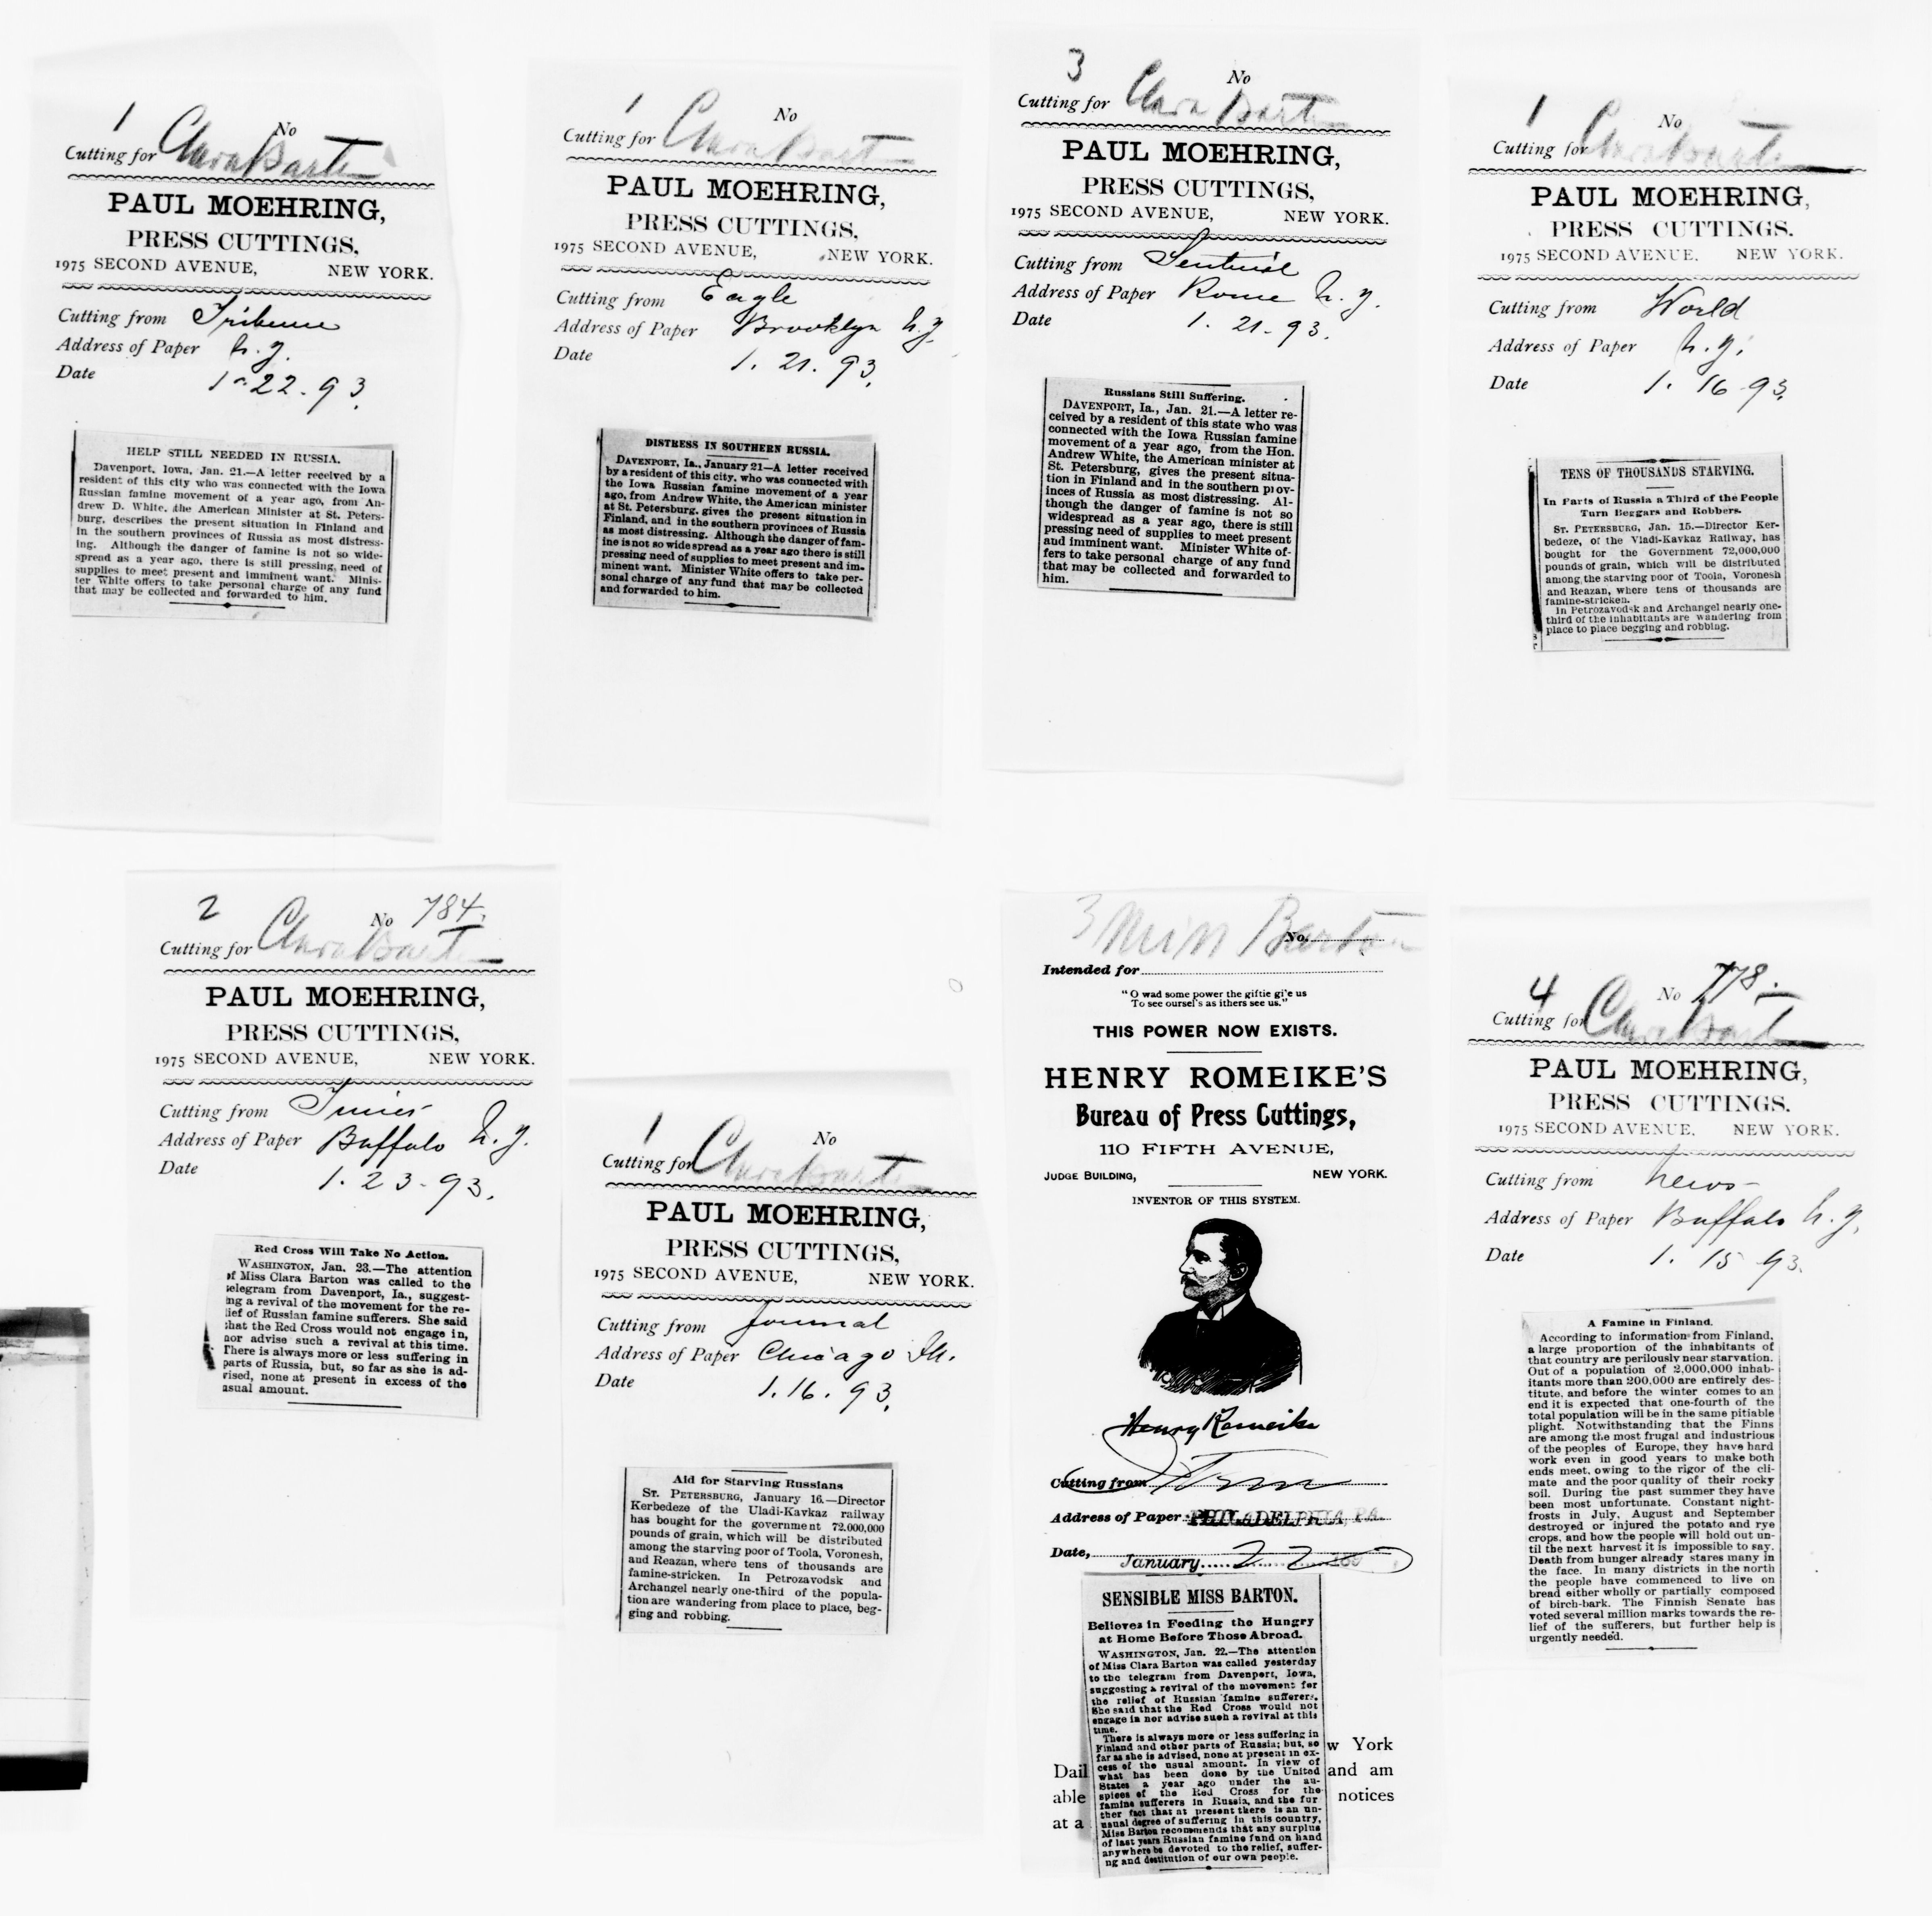 1 No
Cutting for Clara Barton
PAUL MOEHRING,
PRESS CUTTINGS,
1975 SECOND AVENUE, NEW YORK.
Cutting from Tribune
Address of Paper N. Y.
Date 1-22-93.
HELP STILL NEEDED IN RUSSIA.
Davenport, Iowa, Jan. 21.—A letter received by a
resident of this city who was connected with the Iowa
Russian famine movement of a year ago, from An-
drew D. White, the American Minister at St. Peters-
burg, describes the present situation in Finland and
in the southern provinces of Russia as most distress-
ing. Although the danger of famine is not so wide-
spread as a year ago, there is still pressing need of
supplies to meet present and imminent want. Minis-
ter White offers to take personal charge of any fund
that may be collected and forwarded to him.
1 No
Cutting for Clara Barton
PAUL MOEHRING,
PRESS CUTTINGS,
1975 SECOND AVENUE, NEW YORK.
Cutting from Eagle
Address of Paper Brooklyn N. Y.
Date 1. 21. 93.
DISTRESS IN SOUTHERN RUSSIA.
DAVENPORT, Ia., January 21—A letter received
by a resident of this city, who was connected with
the Iowa Russian famine movement of a year
ago, from Andrew White, the American minister
at St. Petersburg, gives the present situation in
Finland, and in the southern provinces of Russia
as most distressing. Although the danger of fam-
ine is not so wide spread as a year ago there is still
pressing need of supplies to meet present and im-
minent want. Minister White offers to take per-
sonal charge of any fund that may be collected
and forwarded to him.
3 No
Cutting for Clara Barton
PAUL MOEHRING,
PRESS CUTTINGS,
1975 SECOND AVENUE, NEW YORK.
Cutting from Sentinel
Address of Paper Rome N. Y.
Date 1. 21- 93.
Russians Still Suffering.
DAVENPORT, Ia., Jan. 21.—A letter re-
ceived by a resident of this state who was
connected with the Iowa Russian famine
movement of a year ago, from the Hon.
Andrew White, the American minister at
St. Petersburg, gives the present situa-
tion in Finland and in the southern prov-
inces of Russia as most distressing. Al-
though the danger of famine is not so
widespread as a year ago, there is still
pressing need of supplies to meet present
and imminent want. Minister White of-
fers to take personal charge of any fund
that may be collected and forwarded to
him.
1 No
Cutting for Clara Barton
PAUL MOEHRING,
PRESS CUTTINGS.
1975 SECOND AVENUE. NEW YORK.
Cutting from World
Address of Paper N. Y.
Date 1. 16-93.
TENS OF THOUSANDS STARVING.
In Parts of Russia a Third of the People
Turn Beggars and Robbers.
ST. PETERSBURG, Jan. 15.—Director Ker-
bedeze, of the Vladi-Kavkaz Railway, has
bought for the Government 72,000,000
pounds of grain, which will be distributed
among the starving poor of Toola, Voronesh
and Reazan, where tens of thousands are
famine-stricken.
In Petrozavodsk and Archangel nearly one-
third of the inhabitants are wandering from
place to place begging and robbing.
2 No 784.
Cutting for Clara Barton
PAUL MOEHRING,
PRESS CUTTINGS,
1975 SECOND AVENUE, NEW YORK.
Cutting from Times
Address of Paper Buffalo N. Y.
Date 1. 23-93.
Red Cross Will Take No Action.
WASHINGTON, Jan. 23.—The attention
of Miss Clara Barton was called to the
telegram from Davenport, Ia., suggest-
ing a revival of the movement for the re-
lief of Russian famine sufferers. She said
that the Red Cross would not engage in,
nor advise such a revival at this time.
There is always more or less suffering in
parts of Russia, but, so far as she is ad-
vised, none at present in excess of the
usual amount.
1 No
Cutting for Clara Barton
PAUL MOEHRING,
PRESS CUTTINGS,
1975 SECOND AVENUE, NEW YORK.
Cutting from Journal
Address of Paper Chicago Ill.
Date 1. 16. 93.
Aid for Starving Russians
ST. PETERSBURG, January 16.—Director
Kerbedeze of the Uladi-Kavkaz railway
has bought for the government 72,000,000
pounds of grain, which will be distributed
among the starving poor of Toola, Voronesh,
and Reazan, where tens of thousands are
famine-stricken. In Petrozavodsk and
Archangel nearly one-third of the popula-
tion are wandering from place to place, beg-
ging and robbing.
3 Miss Barton
No.
Intended for
"O wad some power the giftie gi'e us
To see oursel's as ithers see us."
THIS POWER NOW EXISTS.
HENRY ROMEIKE'S
Bureau of Press Cuttings,
110 FIFTH AVENUE,
JUDGE BUILDING, NEW YORK.
INVENTOR OF THIS SYSTEM.
Henry Romeike
Cutting from
Address of Paper PHILADELPHIA, PA.
Date, January 22
SENSIBLE MISS BARTON.
Believes in Feeding the Hungry
at Home Before Those Abroad.
WASHINGTON, Jan. 22.—The attention
of Miss Clara Barton was called yesterday
to the telegram from Davenport, Iowa,
suggesting a revival of the movement for
the relief of Russian famine sufferers.
She said that the Red Cross would not
engage in nor advise such a revival at this
time.
There is always more or less suffering in
Finland and other parts of Russia; but, so
far as she is advised, none at present in ex-
cess of the usual amount. In view of
what has been done by the United
States a year ago under the au-
spices of the Red Cross for the
famine sufferers in Russia, and the fur
ther fact that at present there is an un-
usual degree of suffering in this country,
Miss Barton recommends that any surplus
of last years Russian famine fund on hand
anywhere be devoted to the relief, suffer-
ng and destitution of our own people.
w York
Dail and am
able notices
at a
4 No 778.
Cutting for Clara Barton
PAUL MOEHRING,
PRESS CUTTINGS.
1975 SECOND AVENUE, NEW YORK.
Cutting from News
Address of Paper Buffalo N. Y.
Date 1. 15-93.
A Famine in Finland.
According to information from Finland,
a large proportion of the inhabitants of
that country are perilously near starvation.
Out of a population of 2,000,000 inhab-
itants more than 200,000 are entirely des-
titute, and before the winter comes to an
end it is expected that one-fourth of the
total population will be in the same pitiable
plight. Notwithstanding that the Finns
are among the most frugal and industrious
of the peoples of Europe, they have hard
work even in good years to make both
ends meet, owing to the rigor of the cli-
mate and the poor quality of their rocky
soil. During the past summer they have
been most unfortunate. Constant night-
frosts in July, August and September
destroyed or injured the potato and rye
crops, and how the people will hold out un-
til the next harvest it is impossible to say.
Death from hunger already stares many in
the face. In many districts in the north
the people have commenced to live on
bread either wholly or partially composed
of birch-bark. The Finnish Senate has
voted several million marks towards the re-
lief of the sufferers, but further help is
urgently needed.